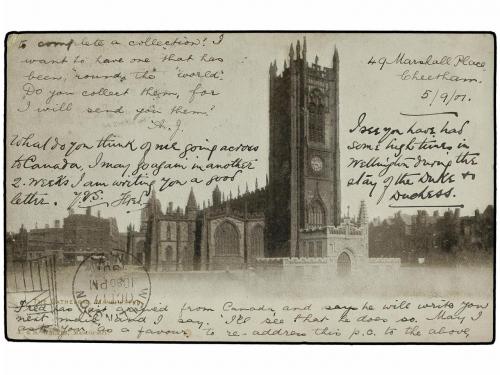 to complete a collection? I
want to have one that has
been, 'round, the 'world.'
Do you collect them, for
I will send you them?
A. J.
49 Marshall Place,
Cheetham.
5/9/01.
What do you think of me going across
to Canada, I may go again in another
2. weeks I am writing you a good
letter. Fred
I see you have had
some high times in
Wellington during the
stay of the Duke &
Duchess.
THE CATHEDRAL, MANCHESTER
Fred has just arrived from Canada, and says he will write you
next mail and I say. 'I'll see that he does so. May I
ask you as a favour to re-address this p.c. to the above,